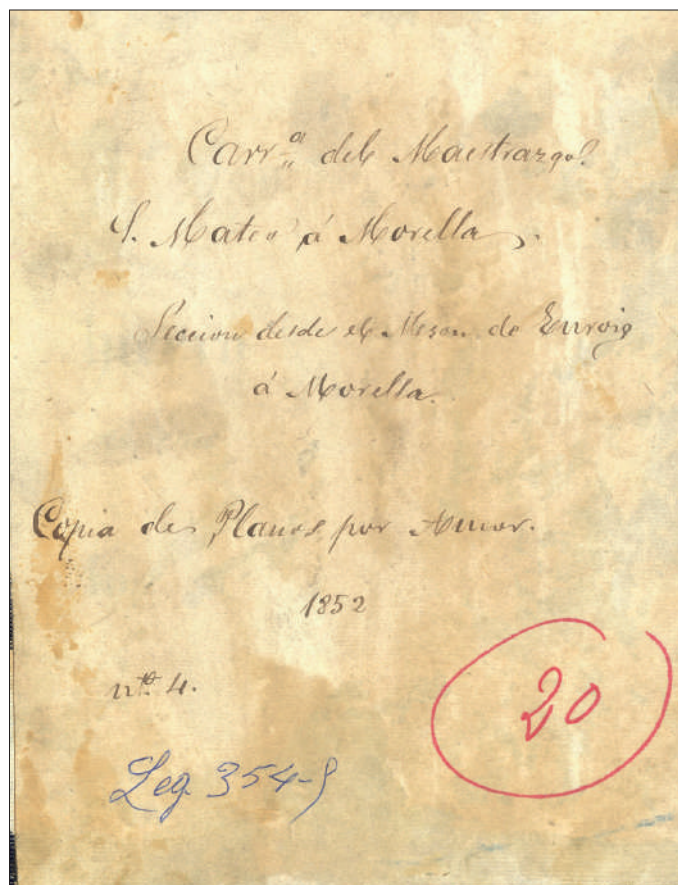 Carr.ª del Maestrazgo.
S. Mateo á Morella.
Seccion desde el Meson de Enroig
á Morella.
Copia de Planos, por Amor.
1852
nº 4.
20
Leg. 354-9